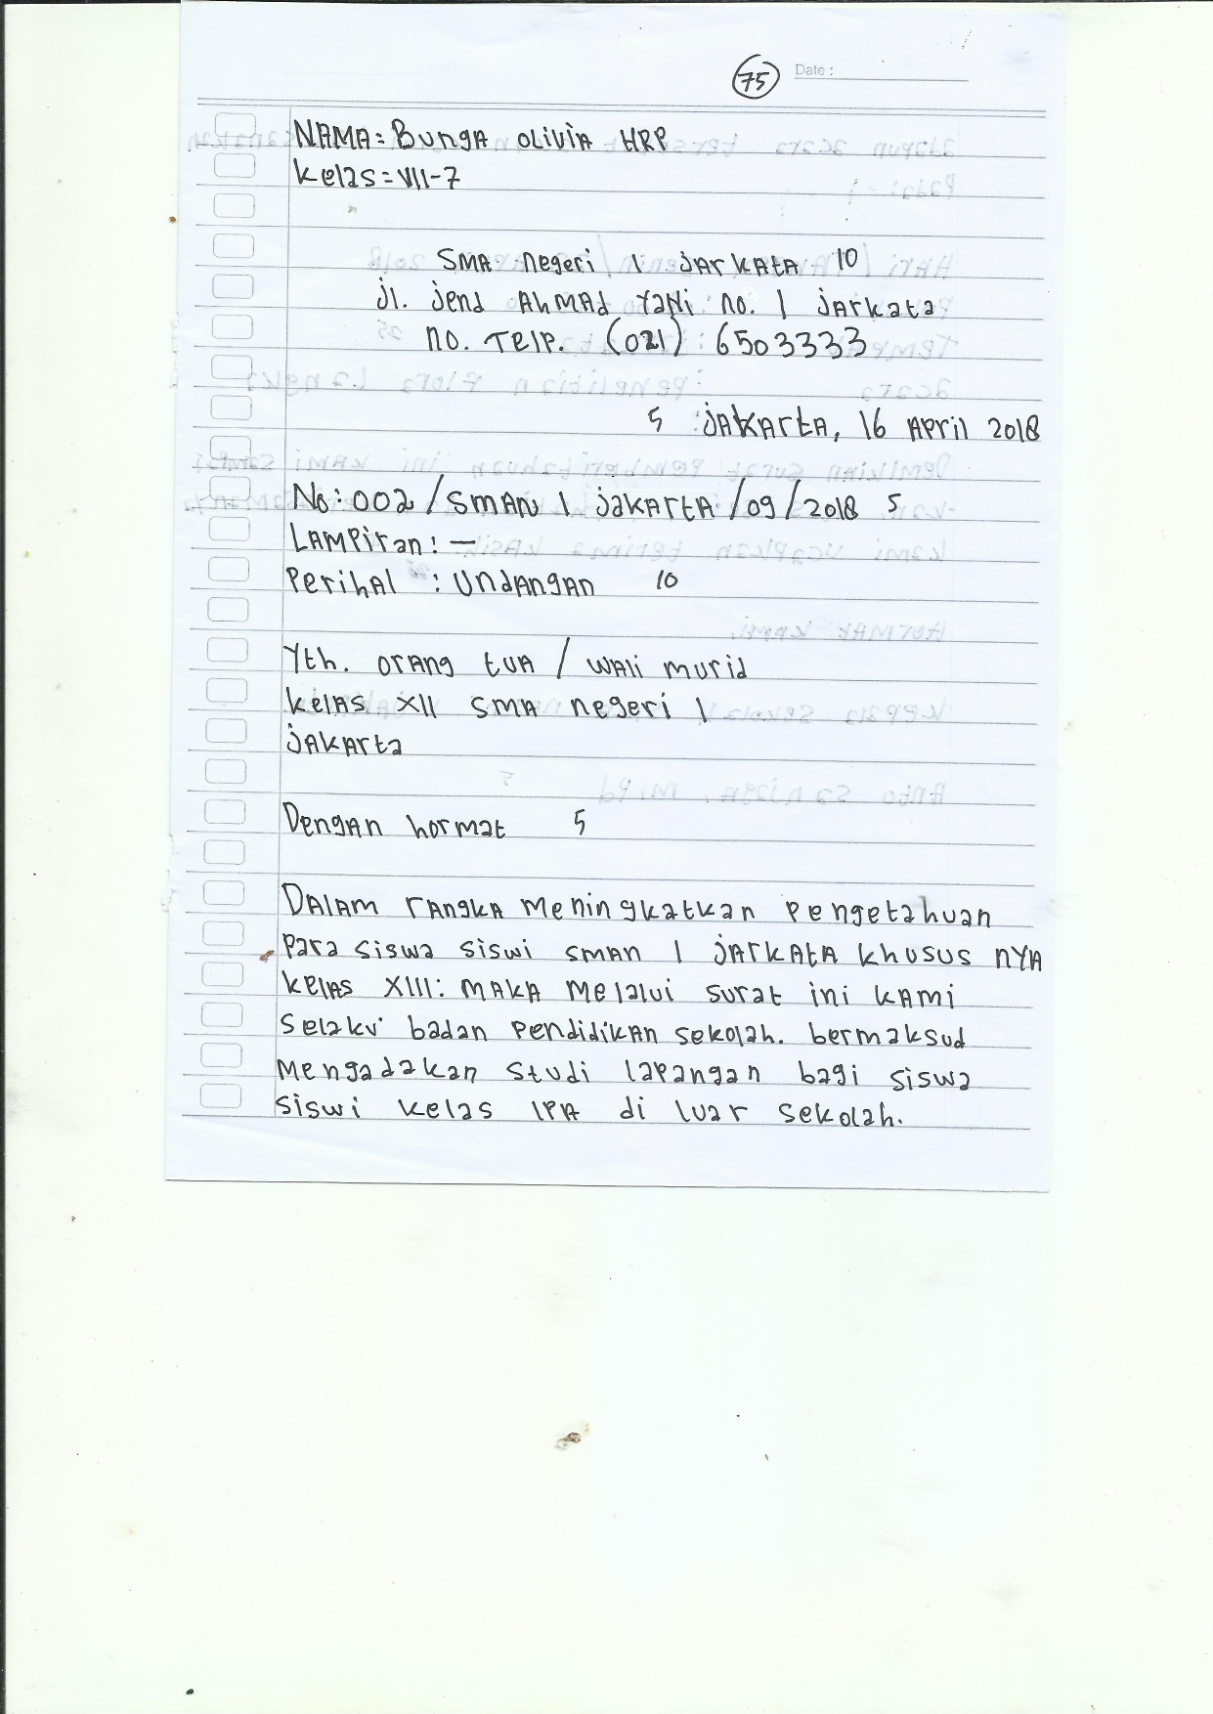 75 Date :
NAMA = Bunga OLIVIA HRP
Kelas = VII-7
SMA negeri 1 jarkata 10
jl. jend Ahmad Yani no. 1 jarkata
no. Telp. (021) 6503333
5 jakarta, 16 April 2018
No : 002 / SMAN 1 jakarta / 09 / 2018 5
Lampiran : —
Perihal : Undangan 10
Yth. orang tua / wali murid
kelas XII SMA negeri 1
jakarta
Dengan hormat 5
Dalam rangka meningkatkan pengetahuan
para siswa siswi sman 1 jarkata khusus nya
kelas XIII: maka melalui surat ini kami
selaku badan pendidikan sekolah. bermaksud
mengadakan studi lapangan bagi siswa
siswi kelas IPA di luar sekolah.